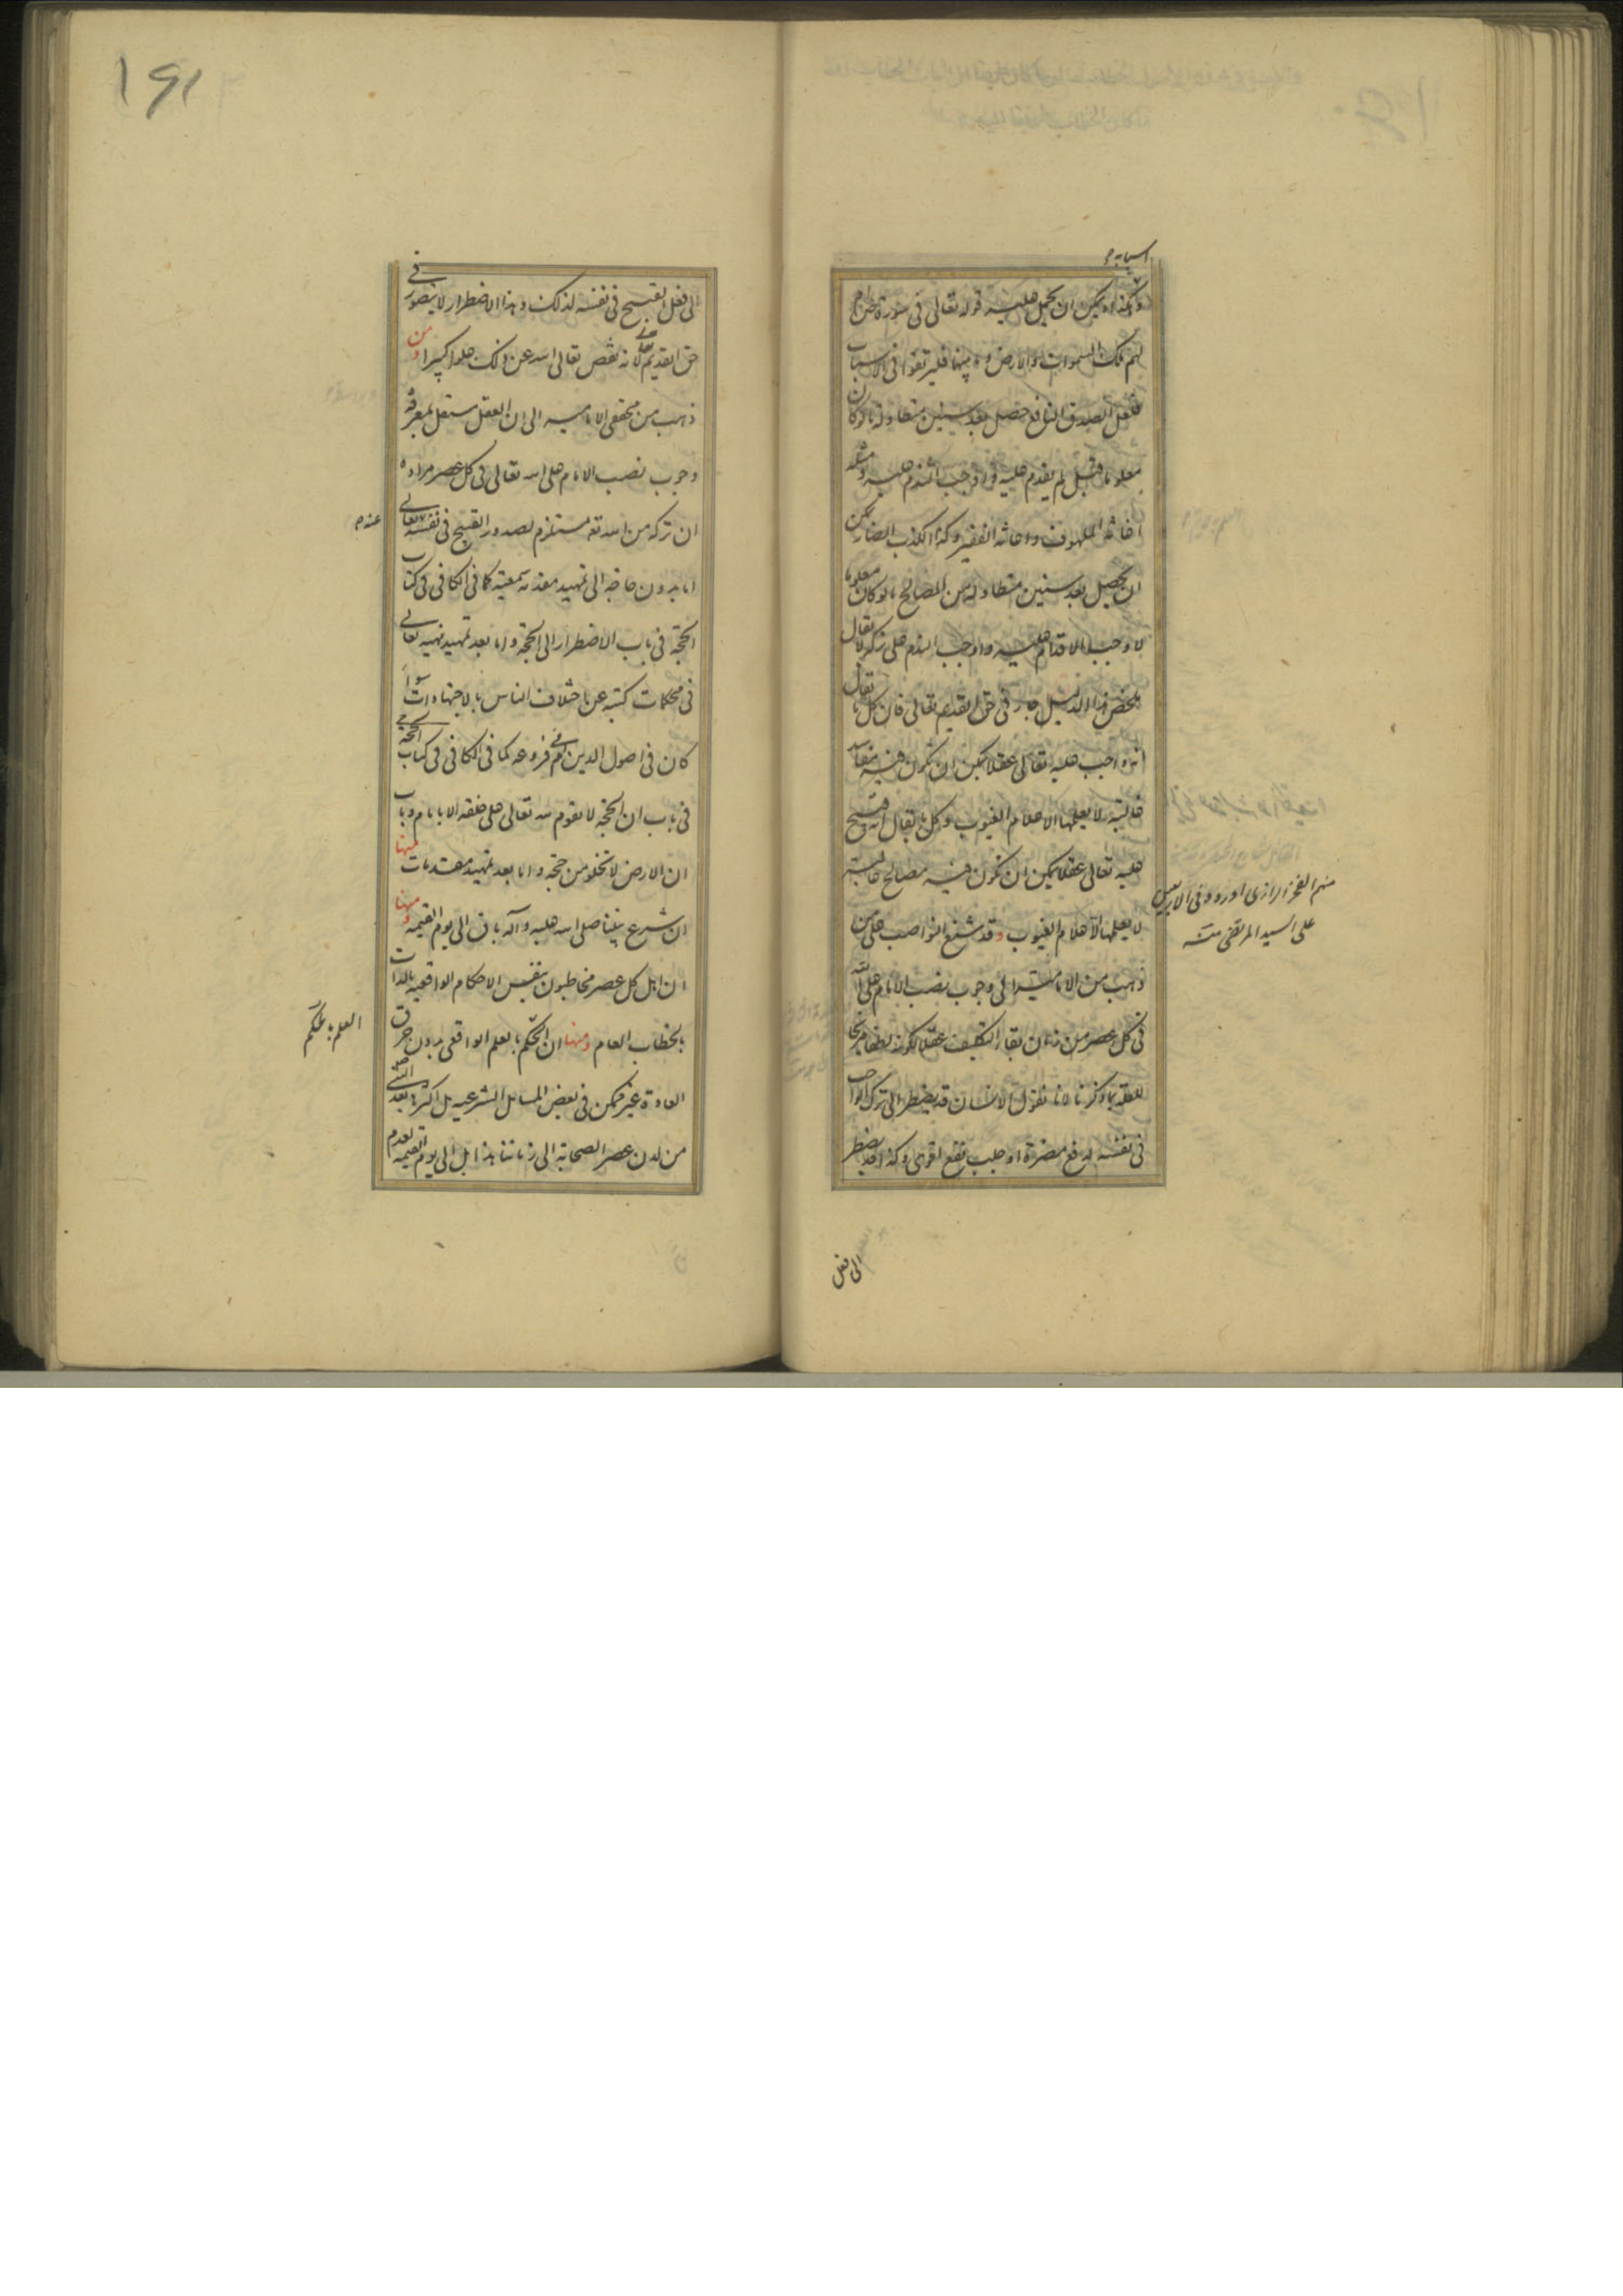 وهكذا ويمكن ان يحمل عليه قوله تعالى في سورة ص ام
لهم ملك السموات والارض وما بينهما فليرتقوا في الاسباب
فلعل الصدق النافع حصل بعد سنين متطاولة ما لو كان
معلوما قبل لم يقدم عليه ولو وجب الندم عليه ومثله
اغاثة الملهوف واعانة الفقير وكذا الكذب الضار يمكن
ان يحصل بعد سنين متطاولة من المصالح ما لو كان معلوما
لا وجب الاقدام عليه واوجب الندم على تركه لا يقال
بعض هذا الدليل جار في حق القديم تعالى فان كل ما يقال
انه واجب عليه تعالى عقلا يمكن ان تكون فيه مفاسد
غالبة لا يعلمها الا علام الغيوب وكل ما يقال انه قبيح
عليه تعالى عقلا يمكن ان تكون فيه مصالح غالبة
لا يعلمها الا علام الغيوب وقد شنع النواصب على من
ذهب من الامامية الى وجوب نصب الامام على الله
في كل عصر من زمان بقاء التكليف عقلا لكونه لطفا
للعقد بما ذكرنا لانا نقول الانسان قد يضطر الى ترك الواجب
في نفسه لدفع مضرة او جلب نفع اقوى وكذا قد يضطر
الى فعل
منهم الفخر الرازي اورده في الاربعين
على السيد المرتضى منه
١٩١
الى فعل القبيح في نفسه لذلك وهذا الاضطرار لا يتصور في
حق القديم تعالى لانه نقص تعالى الله عن ذلك علوا كبيرا ومن
ذهب من محققي الامامية الى ان العقل مستقل بمعرفة
وجوب نصب الامام على الله تعالى في كل عصر مراده
ان تركه من الله تع مستلزم لصدور القبيح في نفسه تعالى
اما بدون حاجة الى تمهيد مقدمة سمعية كما في الكافي في كتاب
الحجة في باب الاضطرار الى الحجة واما بعد تمهيد نهيه تعالى
في محكمات كتبه عن اختلاف الناس بالاجتهادات سواء
كان في اصول الدين ام في فروعه كما في الكافي في كتاب الحجة
في باب ان الحجة لا تقوم لله تعالى على خلقه الا بامام وباب
ان الارض لا تخلو من حجة واما بعد تمهيد مقدمات منها
ان شرع نبينا صلى الله عليه وآله باق الى يوم القيمة ومنها
ان اهل كل عصر مخاطبون بنفس الاحكام الواقعية بالذات
بالخطاب العام ومنها ان الحكم بالعلم الواقعي بدون خرق
العادة غير ممكن في بعض المسائل الشرعية بل اكثرها بعد النبي
من لدن عصر الصحابة الى زماننا هذا بل الى يوم القيمة لعدم
العلم بالحكم